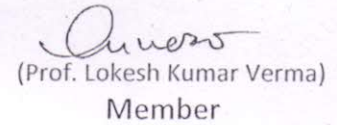 (Prof. Lokesh Kumar Verma)
Member